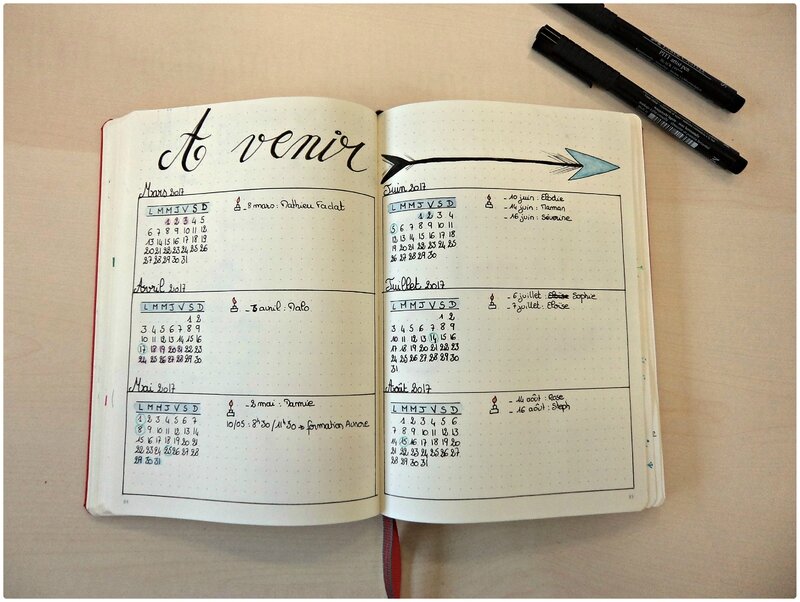 A venir
Mars 2017
L M M J V S D
1 2 3 4 5
6 7 8 9 10 11 12
13 14 15 16 17 18 19
20 21 22 23 24 25 26
27 28 29 30 31
- 8 mars : Mathieu
Avril 2017
L M M J V S D
1 2
3 4 5 6 7 8 9
10 11 12 13 14 15 16
17 18 19 20 21 22 23
24 25 26 27 28 29 30
- 3 avril : Malo
Mai 2017
L M M J V S D
1 2 3 4 5 6 7
8 9 10 11 12 13 14
15 16 17 18 19 20 21
22 23 24 25 26 27 28
29 30 31
- 2 mai : Mamie
10/05 : 8h30/11h30 formation Aurore
Juin 2017
L M M J V S D
1 2 3 4
5 6 7 8 9 10 11
12 13 14 15 16 17 18
19 20 21 22 23 24 25
26 27 28 29 30
- 10 juin : Elodie
- 14 juin : Maman
- 16 juin : Séverine
Juillet 2017
L M M J V S D
1 2
3 4 5 6 7 8 9
10 11 12 13 14 15 16
17 18 19 20 21 22 23
24 25 26 27 28 29 30
31
- 6 juillet : Eloïse Sophie
- 7 juillet : Eloïse
Août 2017
L M M J V S D
1 2 3 4 5 6
7 8 9 10 11 12 13
14 15 16 17 18 19 20
21 22 23 24 25 26 27
28 29 30 31
- 14 août : Rose
- 16 août : Steph
PITT artist pen